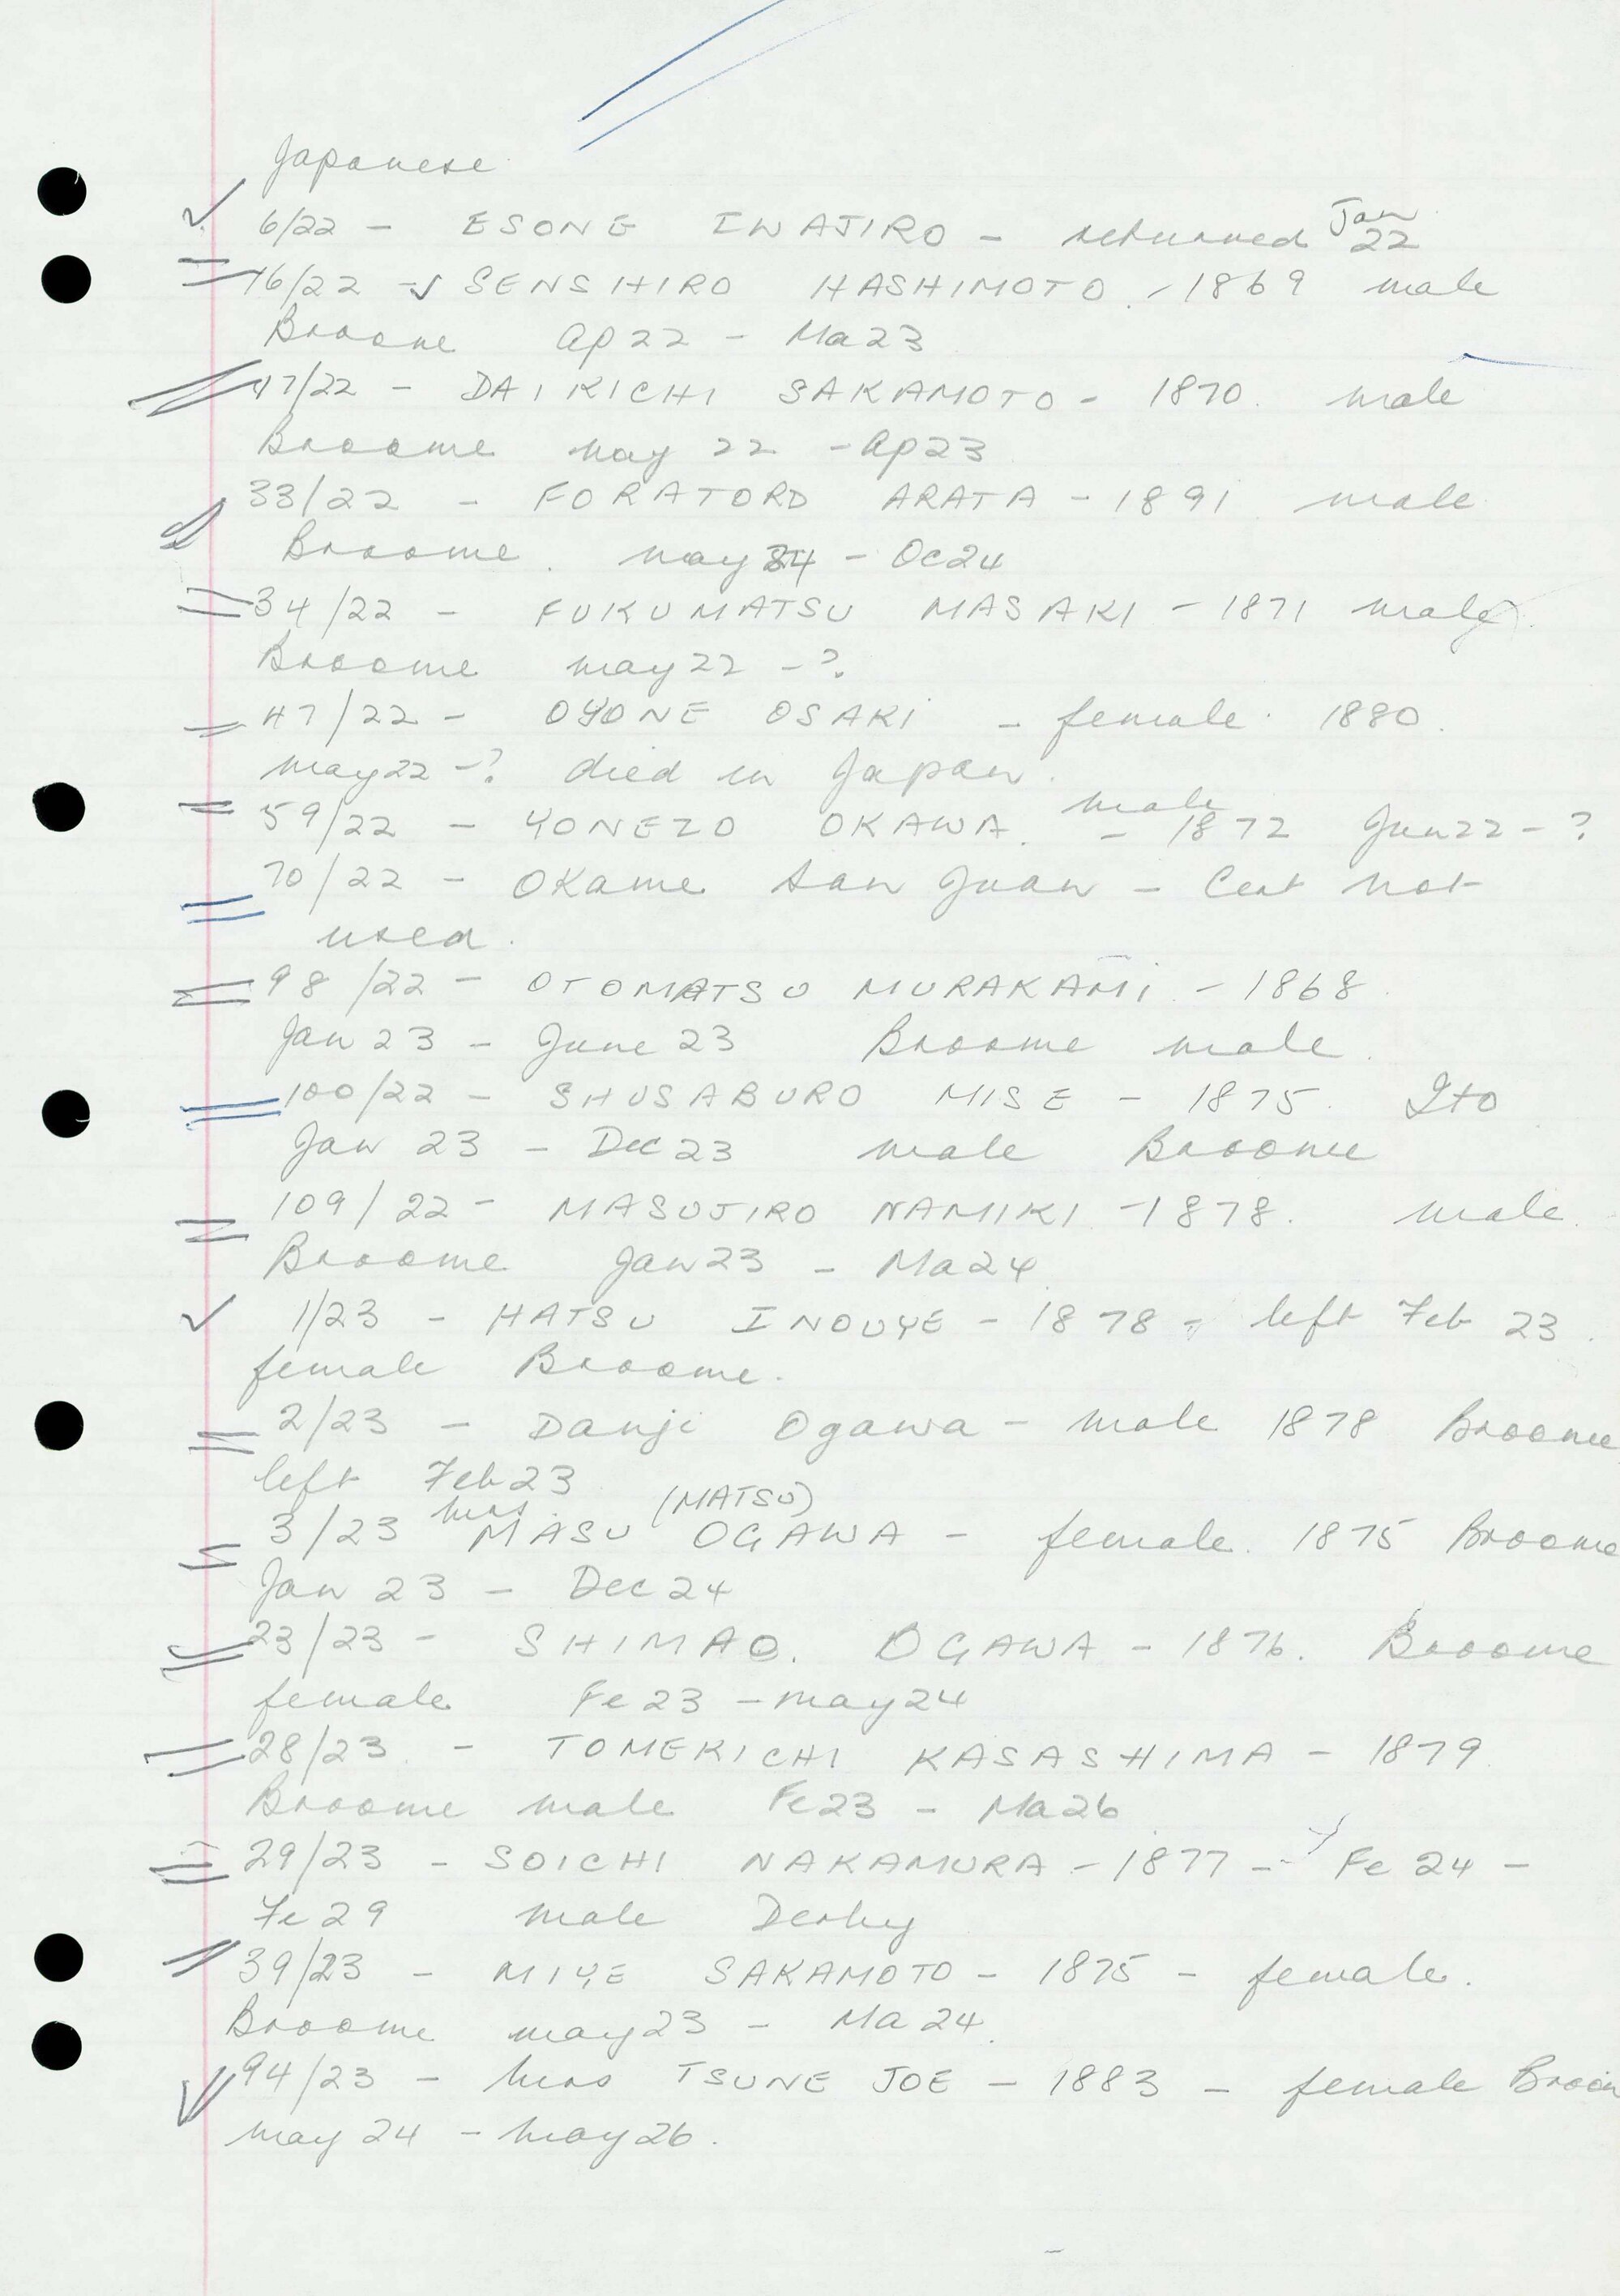 Japanese
6/22 - ESONE IWAJIRO - returned Jan 22
16/22 - SENSHIRO HASHIMOTO - 1869 male
Broome Ap22 - Ma23
17/22 - DAIKICHI SAKAMOTO - 1870. male
Broome May 22 - Ap23
33/22 - FORATORD ARATA - 1891 male
Broome. May 24 - Oc24
34/22 - FUKUMATSU MASAKI - 1871 male
Broome May22 - ?
47/22 - OYONE OSAKI - female. 1880.
May22 - ? died in Japan.
59/22 - YONEZO OKAWA. - male 1872 Jun22 - ?
70/22 - OKame San Juan - Cert not
used.
98/22 - OTOMATSU MURAKAMI - 1868
Jan 23 - June 23 Broome male.
100/22 - SHUSABURO MISE - 1875. Ito
Jan 23 - Dec 23 male Broome
109/22 - MASUJIRO NAMIKI - 1878. male.
Broome Jan23 - Ma24
1/23 - HATSU INOUYE - 1878 - left Feb 23.
female Broome.
2/23 - Danji Ogawa - male 1878 Broome
left Feb23
3/23 Mrs MASU (MATSU) OGAWA - female. 1875 Broome
Jan 23 - Dec 24
23/23 - SHIMAO. OGAWA - 1876. Broome
female Fe23 - May24
28/23 - TOMEKICHI KASASHIMA - 1879
Broome male Fe23 - Ma26
29/23 - SOICHI NAKAMURA - 1877 - Fe 24 -
Fe 29 male Derby
39/23 - MIYE SAKAMOTO - 1875 - female.
Broome May23 - Ma24.
94/23 - Mrs TSUNE JOE - 1883 - female Broom
May 24 - May26.